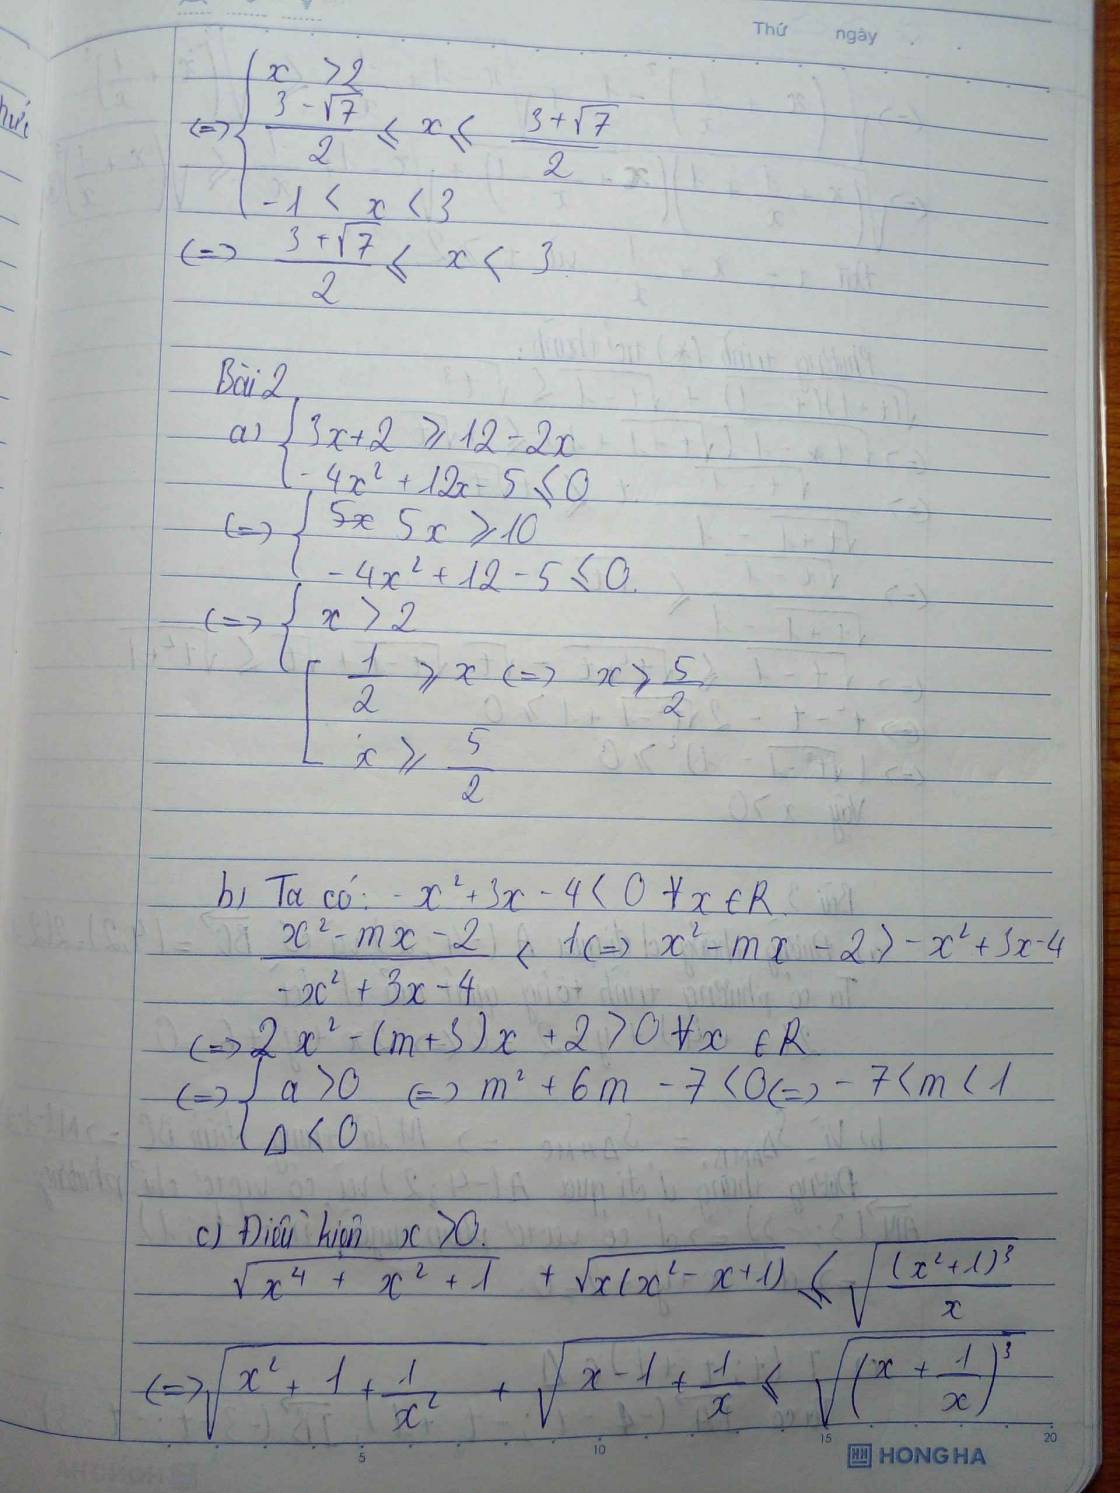 Thứ ngày
⇔ { x > 2
(3 - √7)/2 ≤ x ≤ (3 + √7)/2
-1 < x < 3
⇔ (3 + √7)/2 ≤ x < 3.
Bài 2
a) { 3x + 2 ≥ 12 - 2x
-4x² + 12x - 5 ≤ 0
⇔ { 5x 5x ≥ 10
-4x² + 12 - 5 ≤ 0.
⇔ { x > 2
[ 1/2 ≥ x ⇔ x ≥ 5/2
x ≥ 5/2
b) Ta có: -x² + 3x - 4 < 0 ∀x ∈ R.
(x² - mx - 2)/(-x² + 3x - 4) < 1 ⇔ x² - mx - 2 > -x² + 3x - 4
⇔ 2x² - (m+3)x + 2 > 0 ∀x ∈ R.
⇔ { a > 0 ⇔ m² + 6m - 7 < 0 ⇔ -7 < m < 1
Δ < 0
c) Điều kiện x > 0.
√(x⁴ + x² + 1) + √(x(x² - x + 1)) ≤ √((x² + 1)³/x)
⇔ √(x² + 1 + 1/x²) + √(x - 1 + 1/x) ≤ √((x + 1/x)³)
5 10 15 20
HONG HA